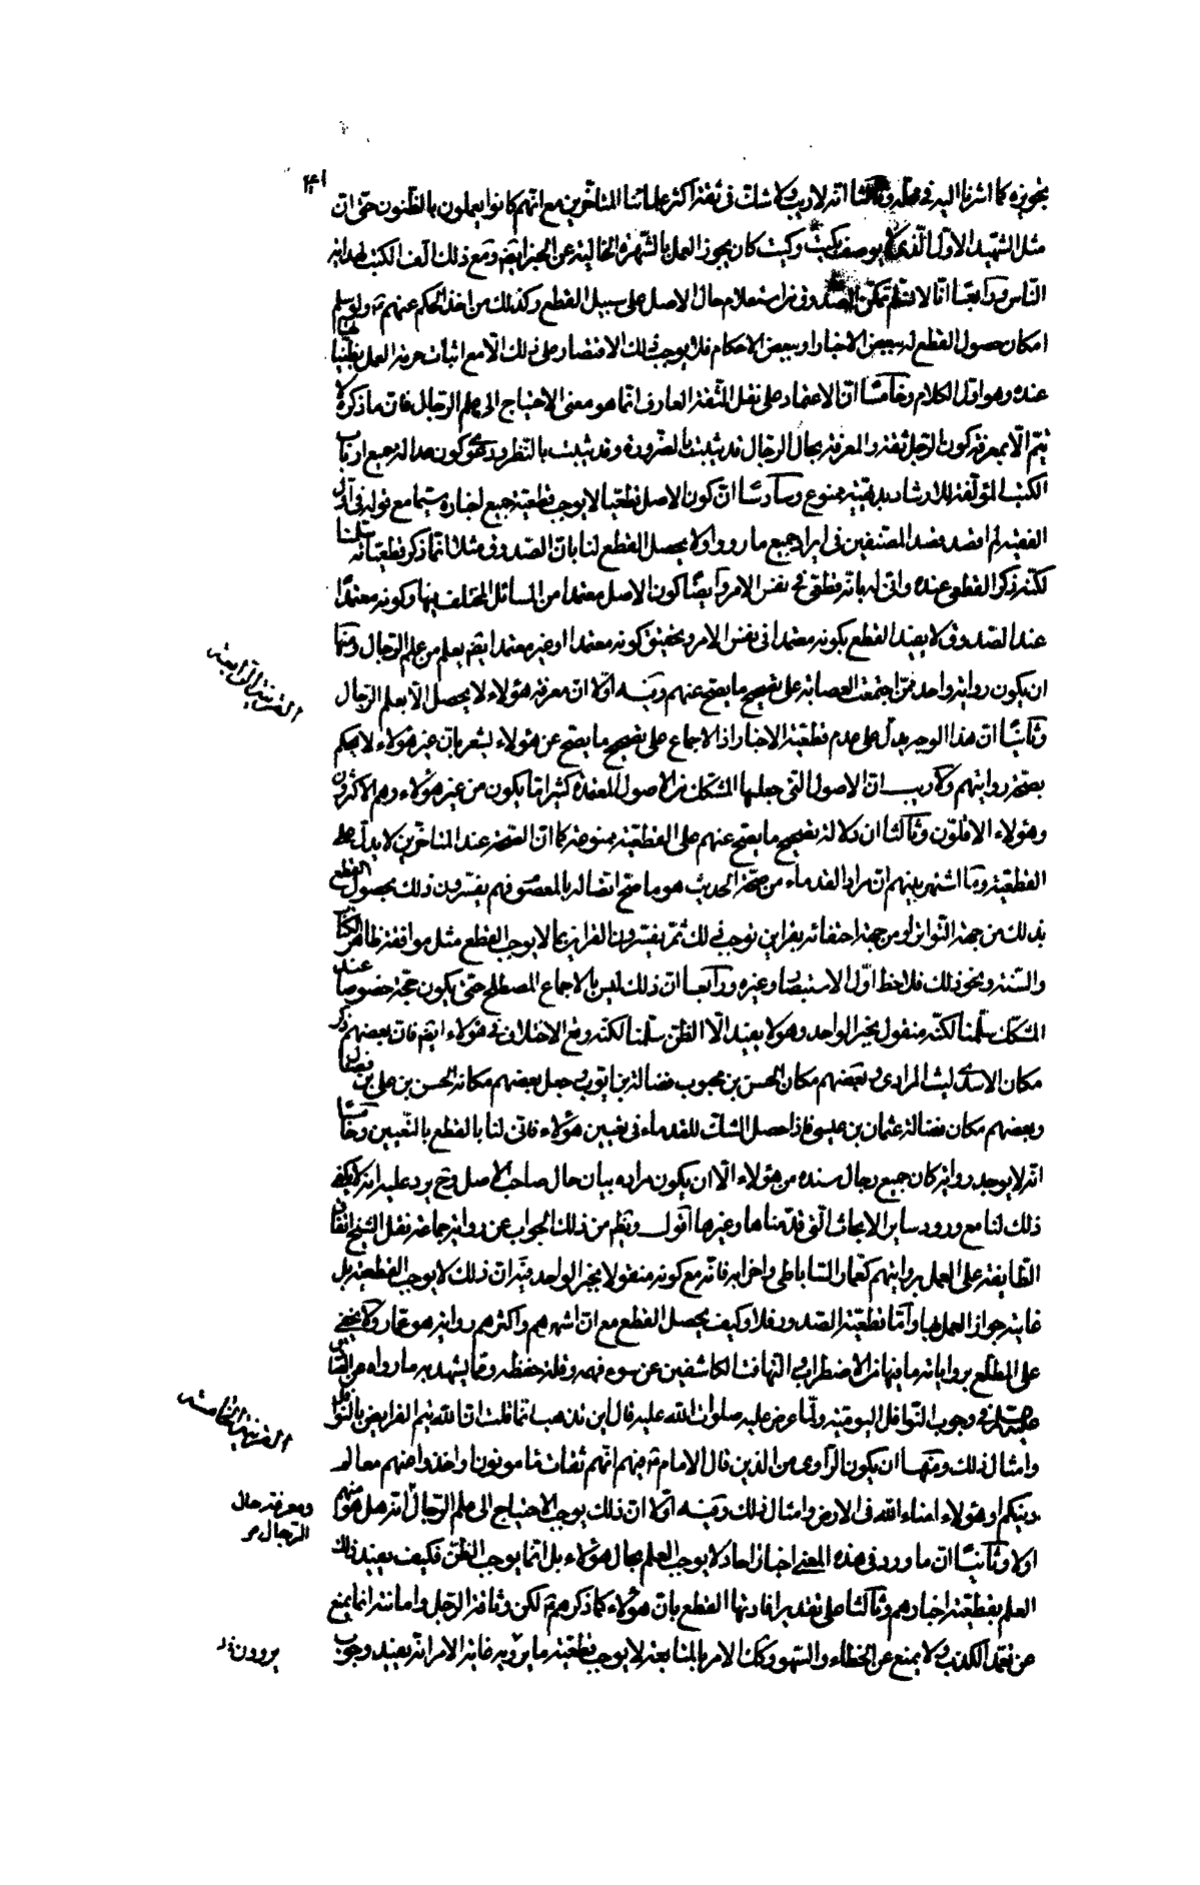 ۱۴۱
بتجويزه كما اشرنا اليه فى محله وثالثا انه لا ريب ولا شك فى ثقة اكثر علمائنا المتأخرين مع انهم كانوا يعملون بالظنون حتى ان
مثل الشهيد الاول الذى يوصف بكيت وكيت كان يجوز العمل بالشهرة الخالية عن الخبر ايضا ومع ذلك الف الكتب لهداية
الناس ورابعا انا لا نسلم تمكن الصدوق من استعلام حال الاصل على سبيل القطع وكذلك من اخذ الحكم عنهم ولو سلم
امكان حصول القطع له ببعض الاخبار او ببعض الاحكام فلا يوجب ذلك الاقتصار على ذلك الا مع اثبات حرمة العمل بظنياتها
عنده وهو اول الكلام وخامسا ان الاعتماد على نقل الثقة العارف انما هو معنى الاحتياج الى علم الرجال فان ما ذكره لا
يتم الا بمعرفة كون الرجل ثقة والمعرفة بحال الرجال قد يثبت بالضرورة وقد يثبت بالنظر ودعوى كون عدالة جميع ارباب
الكتب المؤلفة للارشاد بديهية ممنوع وسادسا ان كون الاصل قطعيا لا يوجب قطعية جميع اخباره سيما مع قوله فى اول
الفقيه لم اقصد قصد المصنفين فى ايراد جميع ما رووا ولا يحصل القطع لنا بان الصدوق مثلا انما ذكر قطعياته سلمنا
لكنه ذكر القطعى عنده وانى له بانه قطعى فى نفس الامر وايضا كون الاصل معتمدا من المسائل المختلف فيها وكونه معتمدا
عند الصدوق لا يفيد القطع بكونه معتمدا فى نفس الامر وتحقيق كونه معتمدا او غير معتمد ايضا يعلم من علم الرجال ومنها
ان يكون رواية واحد ممن اجتمعت العصابة على تصحيح ما يصح عنهم وفيه اولا ان معرفة هؤلاء لا يحصل الا بعلم الرجال
وثانيا ان هذا الوجه يدل على عدم قطعية الاخبار اذ الاجماع على تصحيح ما يصح عن هؤلاء يشعر بان غير هؤلاء لا يحكم
بصحة روايتهم ولا ريب ان الاصول التى جعلها المشكك من الاصول المعتمدة كثيرا ما يكون من غير هؤلاء وهم الاكثرون
وهؤلاء الاقلون وثالثا ان دلالة تصحيح ما يصح عنهم على القطعية ممنوعة كما ان الصحة عند المتأخرين لا يدل على
القطعية وما اشتهر بينهم ان مراد القدماء من صحة الحديث هو ما صح اتصاله بالمعصوم فهم يفسرون ذلك بحصول القطع
بذلك من جهة التواتر او من جهة احتفائه بقراين توجب ذلك ثم يفسرون القراين بما لا يوجب القطع مثل موافقة ظاهر الكتاب
والسنة ونحو ذلك فلاحظ اول الاستبصار وغيره ورابعا ان ذلك ليس بالاجماع المصطلح حتى يكون حجة خصوصا عند
المشكك سلمنا لكنه منقول بخبر الواحد وهو لا يفيد الا الظن سلمنا لكنه وقع الاختلاف فى هؤلاء ايضا فان بعضهم ذكر
مكان الاسدى ليث المرادى وبعضهم مكان الحسن بن محبوب فضالة بن ايوب وجعل بعضهم مكانه الحسن بن على بن فضال
وبعضهم مكان فضالة عثمان بن عيسى فاذا حصل الشك للقدماء فى تعيين هؤلاء فانى لنا بالقطع بالتعيين وخامسا
انه لا يوجد رواية كان جميع رجال سنده من هؤلاء الا ان يكون مراده بيان حال صاحب الاصل وح يرد عليه انه لا يكفى
ذلك لنا مع ورود ساير الابحاث التى قدمناها وغيرها اقول ويظهر من ذلك الجواب عن رواية جماعة نقل الشيخ اتفاق
الطايفة على العمل بروايتهم كعمار الساباطى واضرابه فانه مع كونه منقولا بخبر الواحد فيه ان ذلك لا يوجب القطعية بل
غايته جواز العمل بها واما قطعية الصدور فلا وكيف يحصل القطع مع ان اشهرهم واكثرهم رواية هو عمار ولا يخفى
على المطلع برواياته ما فيها من الاضطراب والتهافت الكاشفين عن سوء فهمه وقلة حفظه ومما يشهد به ما رواه عن الصادق
عليه السلام فى وجوب النوافل اليومية ولما عرض عليه صلوات الله عليه قال اين تذهب انما قلت ان الله يتم الفرايض بالنوافل
وامثال ذلك ومنها ان يكون الراوى من الذين قال الامام ع فيهم انهم ثقات مأمونون او خذوا عنهم معالم
دينكم او هؤلاء امناء الله فى الارض وامثال ذلك وفيه اولا ان ذلك يوجب الاحتياج الى علم الرجال انه هل هو منهم
او لا وثانيا ان ما ورد فى هذه المعنى اخبار احاد لا يوجب العلم بحال هؤلاء بل انما يوجب الظن فكيف يفيد ذلك
العلم بقطعية اخبارهم وثالثا على تقدير افادتها القطع بان هؤلاء كما ذكرهم ع لكن وثاقة الرجل وامانته انما يمنع
عن تعمد الكذب ولا يمنع عن الخطاء والسهو وكذا الامر بالمتابعة لا يوجب قطعية ما يرويه غاية الامر انه يفيد وجوب
القرينة الرابعة
القرينة الخامسة
ومعرفة حال
الرجال مر
يروون